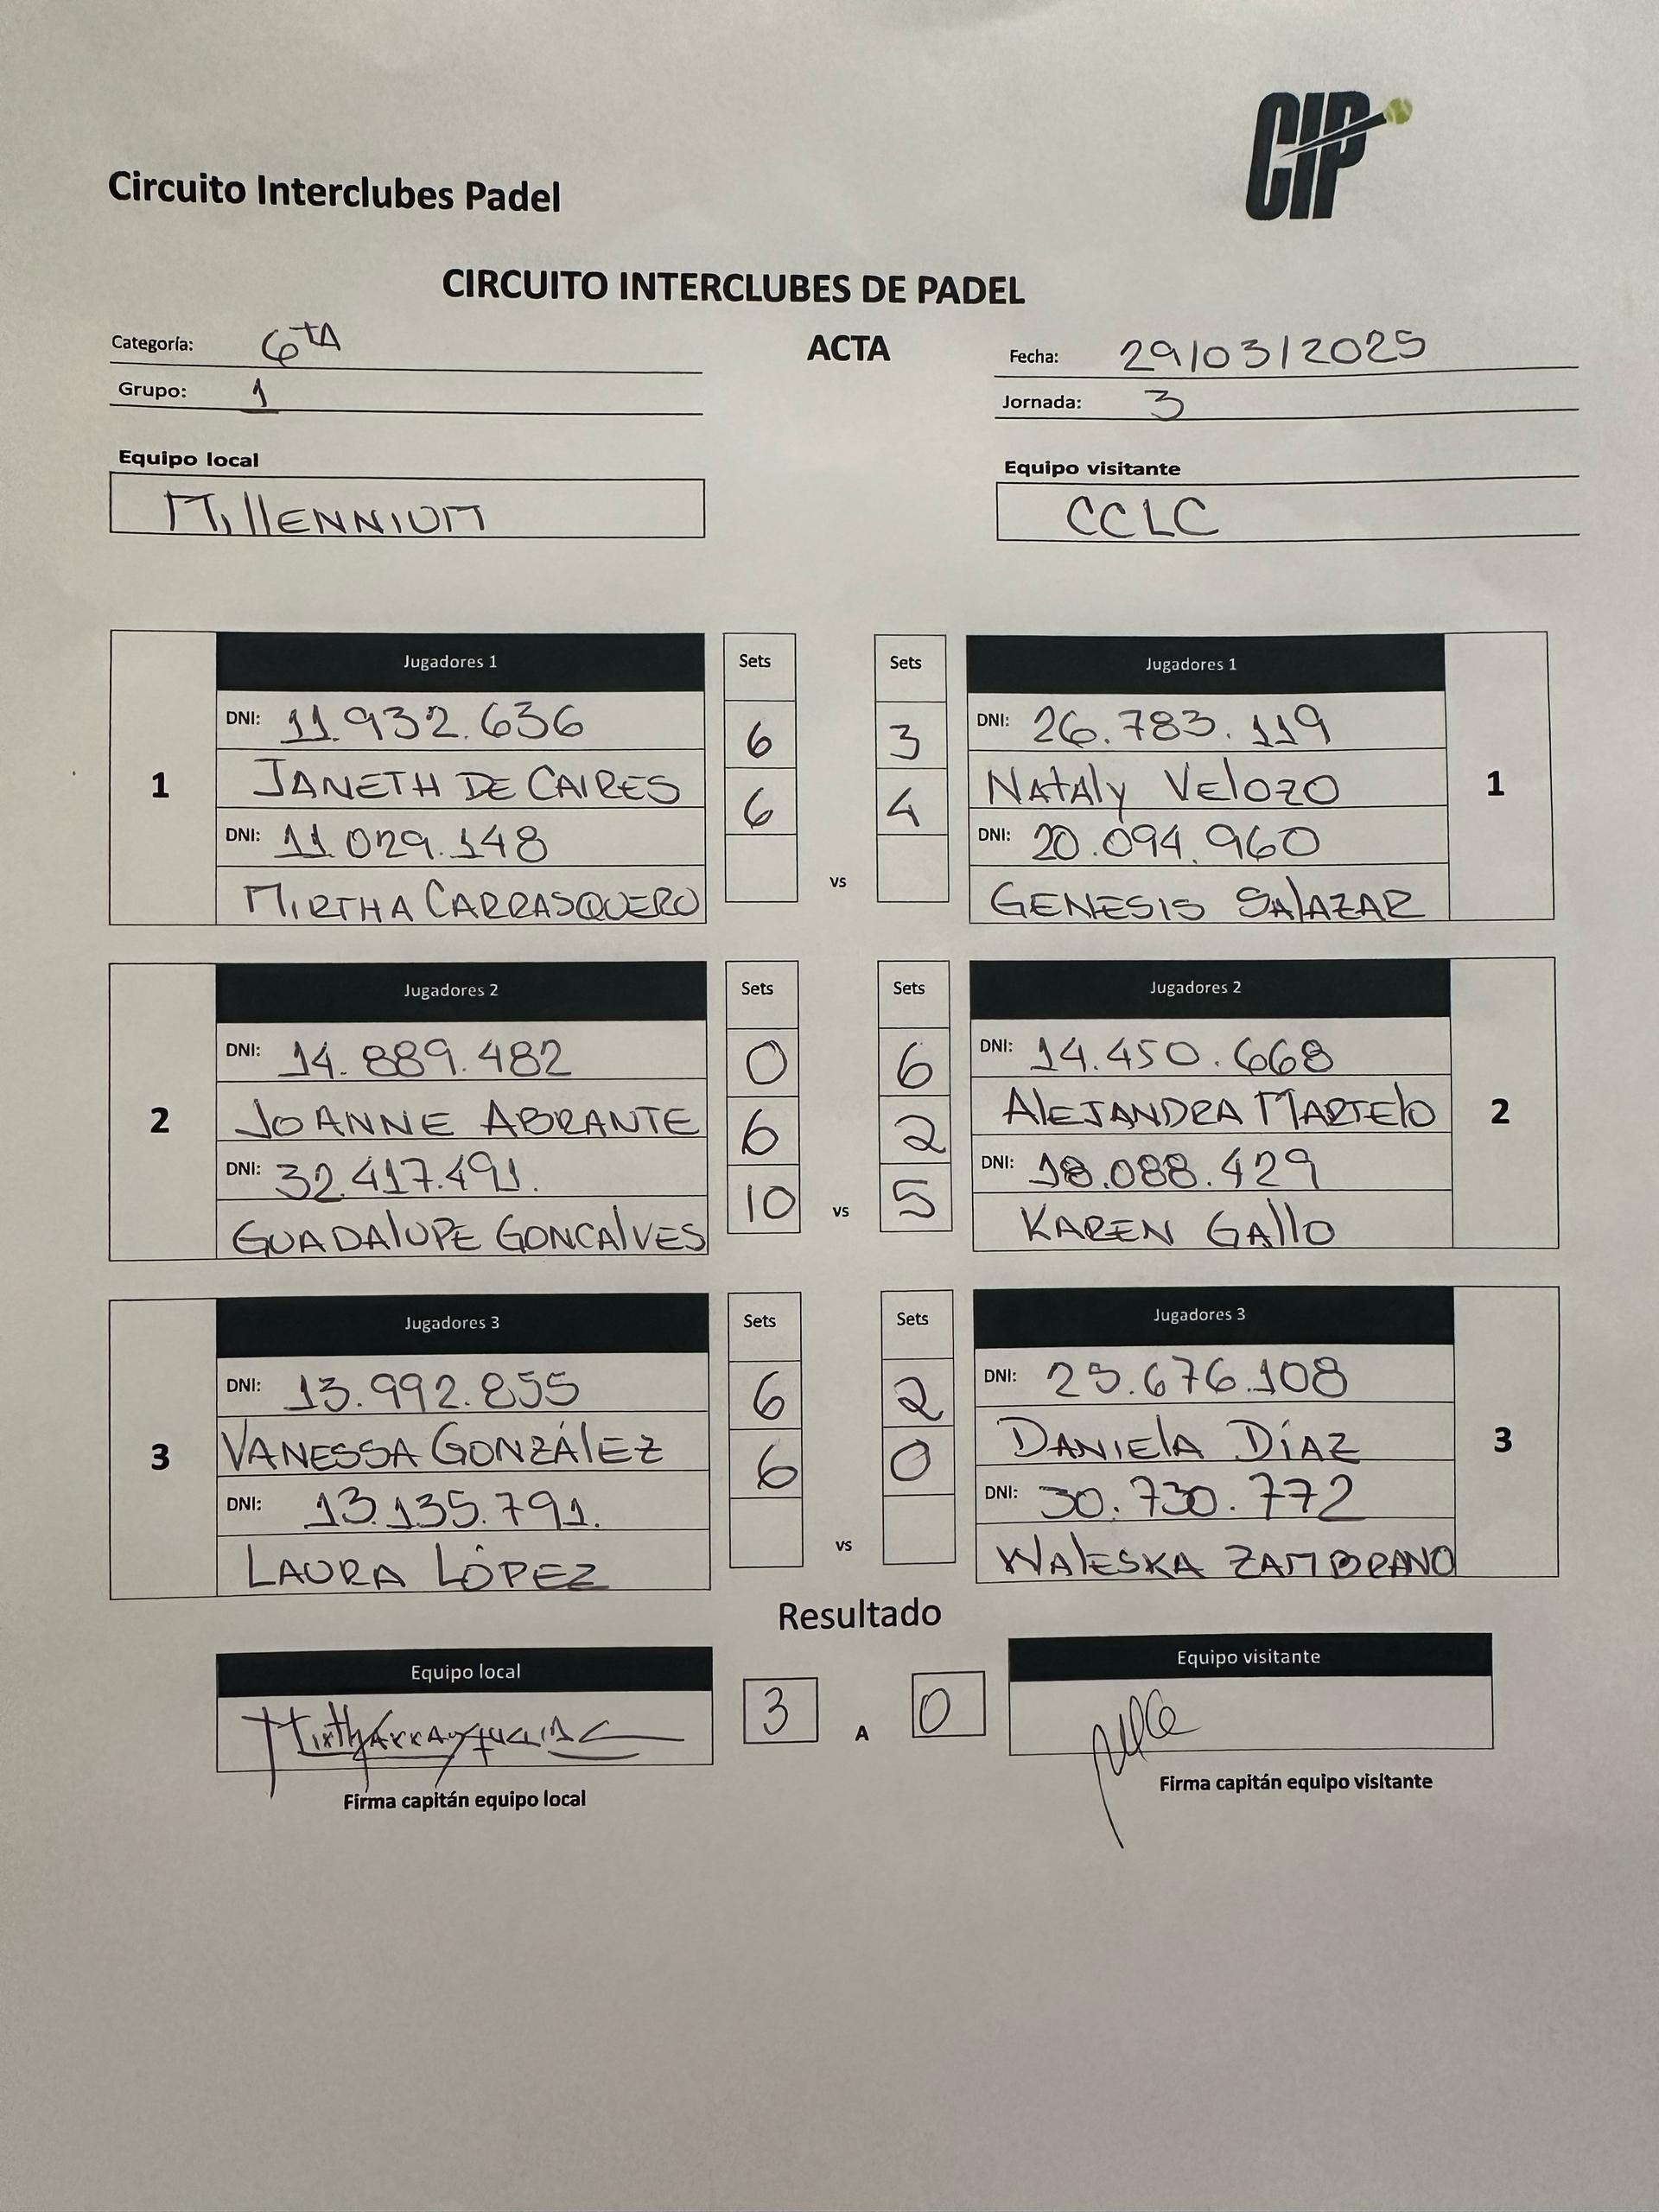 CIP
Circuito Interclubes Padel
CIRCUITO INTERCLUBES DE PADEL
Categoría: 6tA
ACTA
Fecha: 29/03/2025
Grupo: 1
Jornada: 3
Equipo local
Equipo visitante
MillENNIUM
CCLC
Jugadores 1 Sets Sets Jugadores 1
DNI: 11.932.636 6 3 DNI: 26.783.119
1 JANETH DE CAIRES 6 4 NAtAly VElozo 1
DNI: 11.029.148 DNI: 20.094.960
vs
MIRTHA CARRASQUERO GENESIS SAlAZAR
Jugadores 2 Sets Sets Jugadores 2
DNI: 14.889.482 0 6 DNI: 14.450.668
2 JOANNE ABRANTE 6 2 AlEJANDRA MARTElo 2
DNI: 32.417.491. 10 vs 5 DNI: 18.088.429
GUADAlUPE GONCAlVES KAREN GAllo
Jugadores 3 Sets Sets Jugadores 3
DNI: 13.992.855 6 2 DNI: 25.676.108
3 VANESSA GONZÁlEZ 6 0 DANIElA DÍAZ 3
DNI: 13.135.791. DNI: 30.730.772
vs
LAURA LÓPEZ WAlESKA ZAMBRANO
Resultado
Equipo local 3 A 0 Equipo visitante
Firma capitán equipo local
Firma capitán equipo visitante